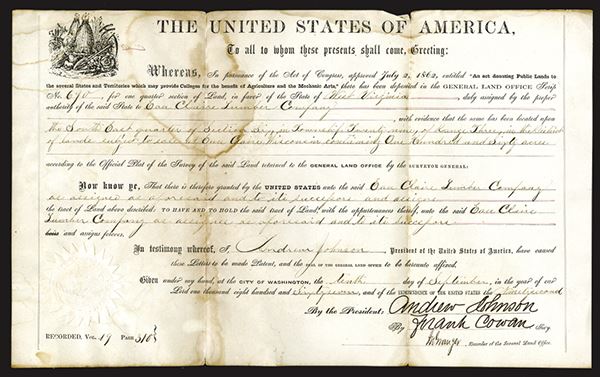 THE UNITED STATES OF AMERICA,
To all to whom these presents shall come, Greeting:
Whereas, In pursuance of the Act of Congress, approved July 2, 1862, entitled "An act donating Public Lands to
the several States and Territories which may provide Colleges for the benefit of Agriculture and the Mechanic Arts," there has been deposited in the GENERAL LAND OFFICE Scrip
No. 690, for one quarter section of Land, in favor of the State of West Virginia, duly assigned by the proper
authority of the said State to Eau Claire Lumber Company
, with evidence that the same has been located upon
the South East quarter of Section Six, in Township Twenty nine, of Range Three, in the District
of lands subject to sale at Eau Claire Wisconsin containing One Hundred and Sixty acres
according to the Official Plat of the Survey of the said Land returned to the GENERAL LAND OFFICE by the SURVEYOR GENERAL:
Now know ye, That there is therefore granted by the UNITED STATES unto the said Eau Claire Lumber Company
as assignee as aforesaid and to its successors and assigns
the tract of Land above described: TO HAVE AND TO HOLD the said tract of Land, with the appurtenances thereof, unto the said Eau Claire
Lumber Company as assignee as aforesaid and to its successors
heirs and assigns forever.
In testimony whereof, I, Andrew Johnson, President of the United States of America, have caused
these Letters to be made Patent, and the SEAL OF THE GENERAL LAND OFFICE to be hereunto affixed.
Given under my hand, at the CITY OF WASHINGTON, the tenth day of September, in the year of our
Lord one thousand eight hundred and Sixty seven, and of the INDEPENDENCE OF THE UNITED STATES the Ninety second
By the President: Andrew Johnson
By Frank Cowan Sec'y
Recorder of the General Land Office.
RECORDED, VOL. 19 PAGE 310